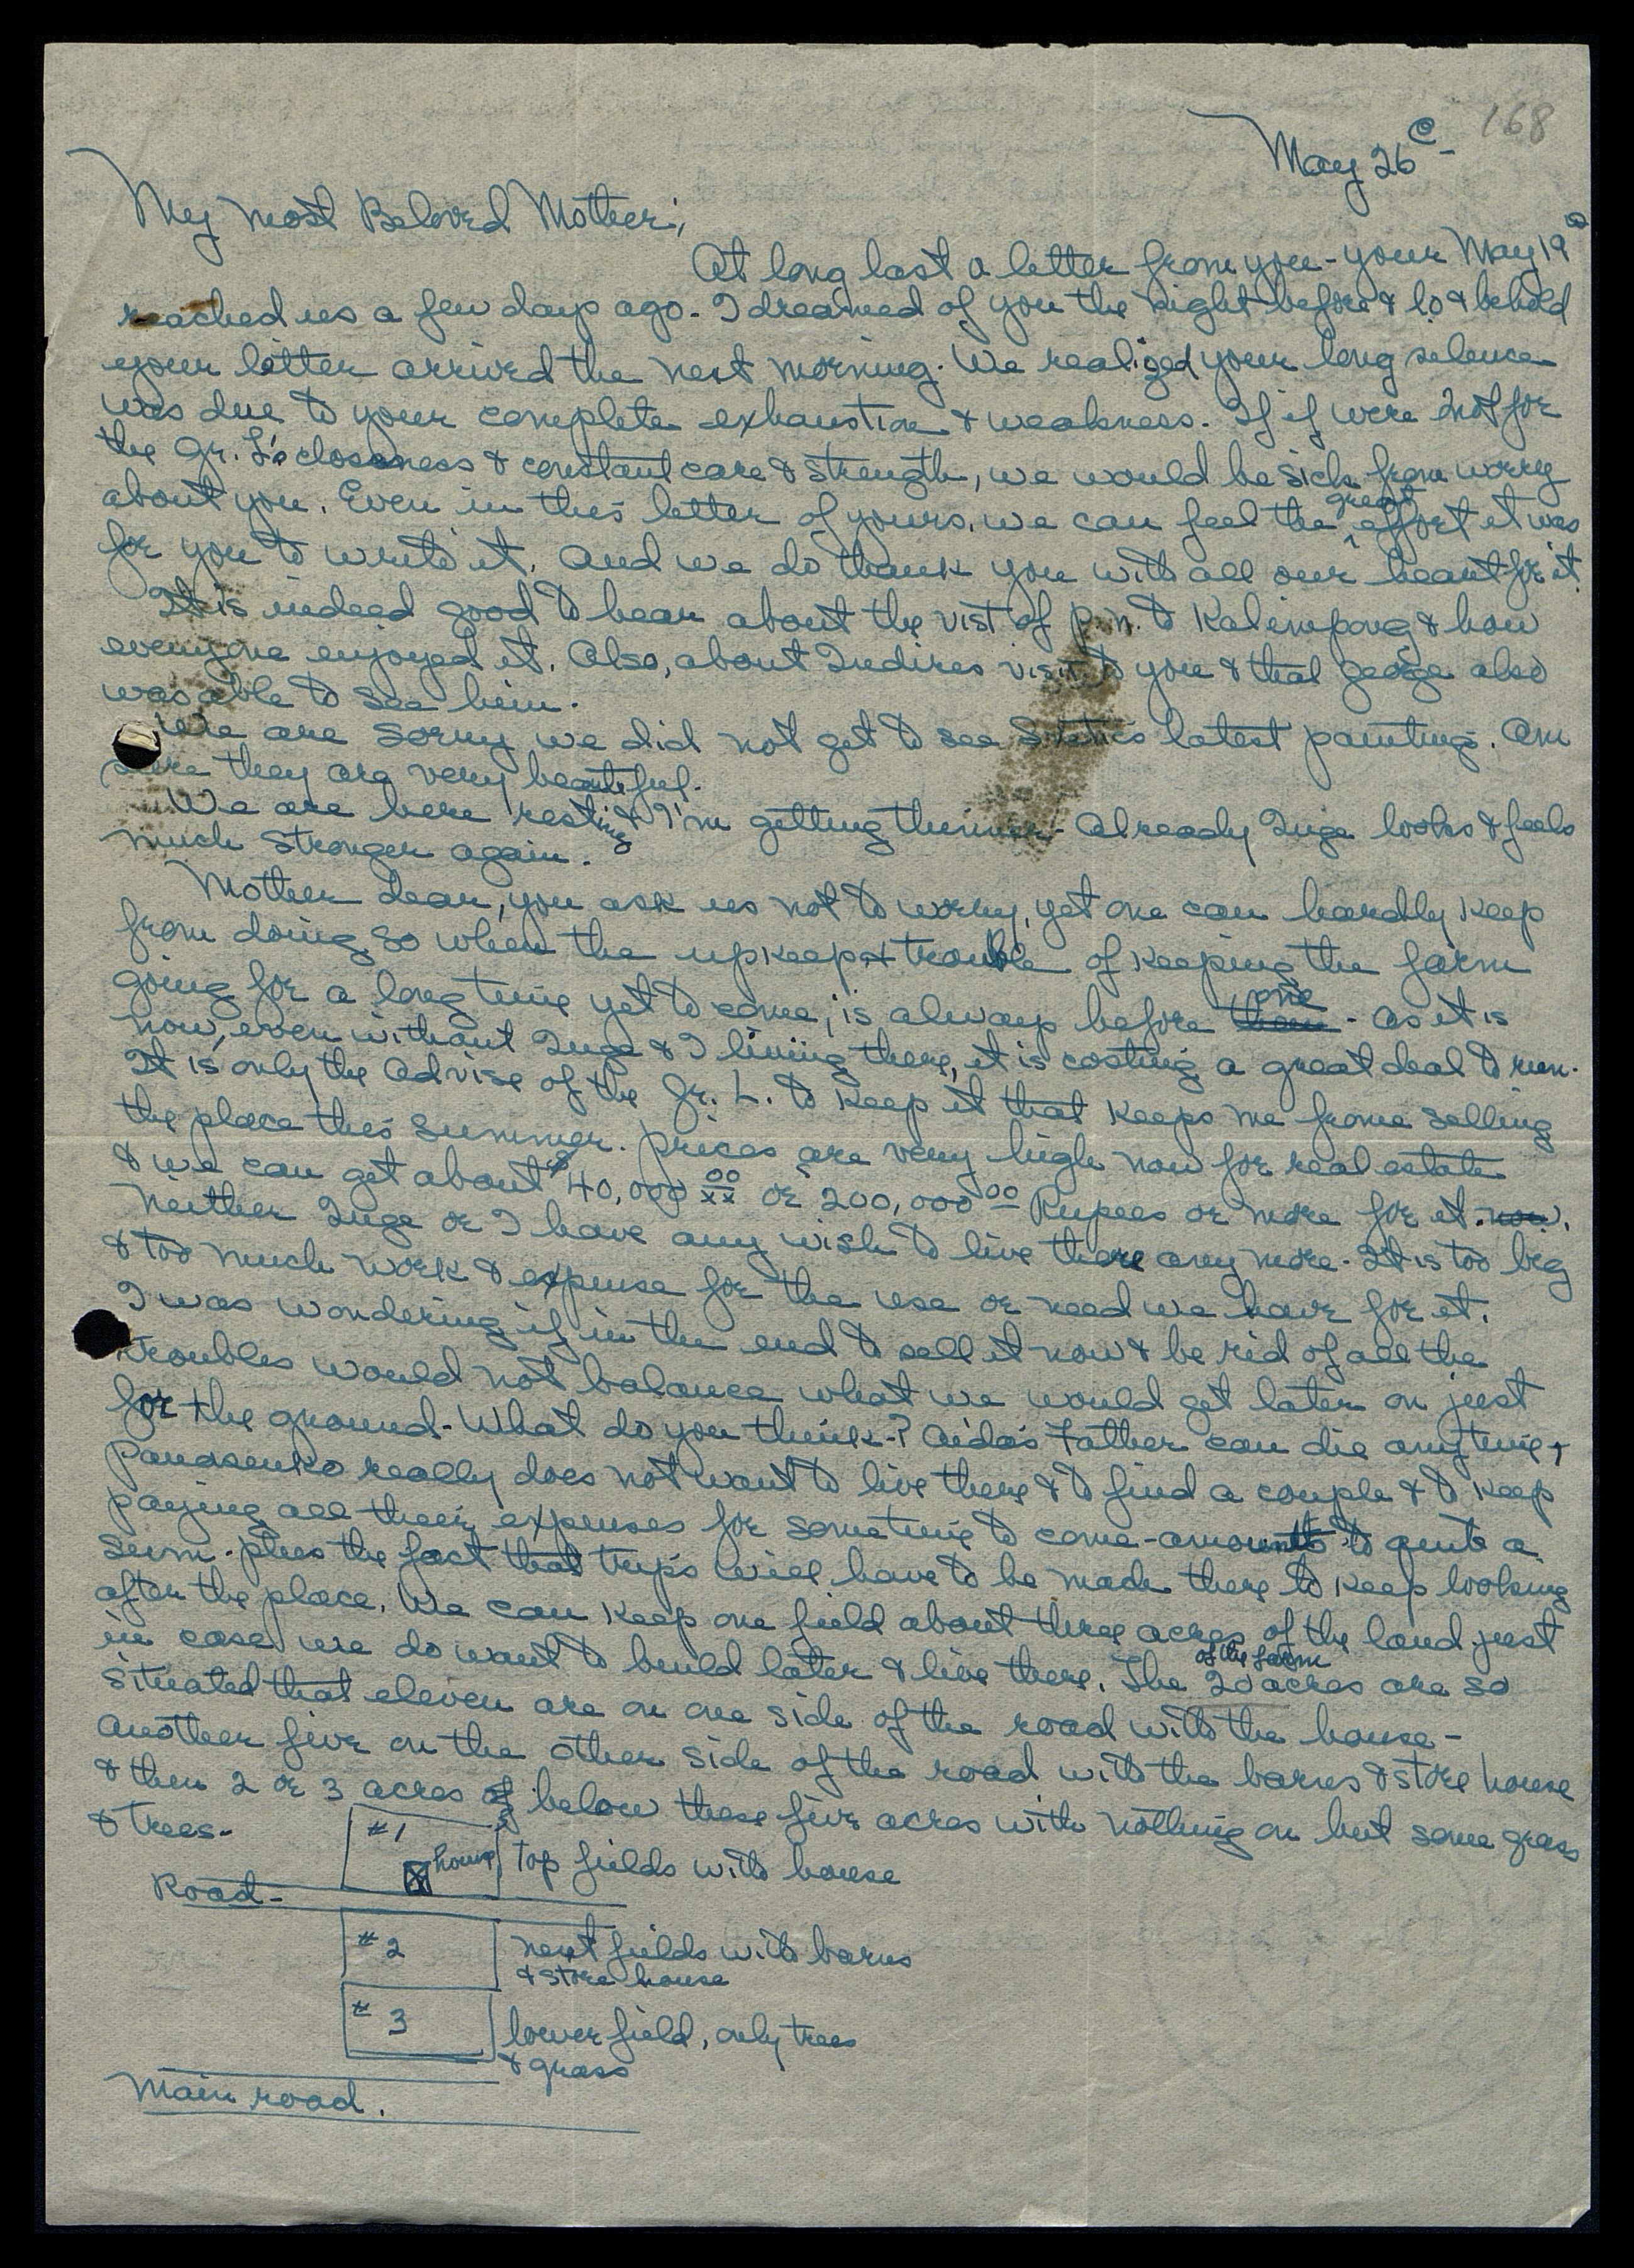 168
May 26e-
My most Beloved Mother;
At long last a letter from you - your May 19
reached us a few days ago. I dreamed of you the night before & lo & behold
your letter arrived the next morning. We realized your long silence
was due to your complete exhaustion & weakness. If if were not for
the Gr. L's closeness & constant care & strength, we would be sick from worry
about you. Even in this letter of yours, we can feel the great effort it was
for you to write it. And we do thank you with all our heart for it.
It is indeed good to hear about the vist of P.N. to Kalimpong & how
everyone enjoyed it. Also, about Indires visit to you & that George also
was able to see him.
We are sorry we did not get to see latest paintings. Am
sure they are very beautiful.
We are here resting & I'm getting thinner - Already Inge looks & feels
much stronger again.
Mother dear, you ask us not to worry, yet one can hardly keep
from doing so when the upkeep & trouble of keeping the farm
going for a long time yet to come, is always before one - As it is
now, even without Inge & I living there, it is costing a great deal to run.
It is only the advise of the Gr. L. to keep it that keeps me from selling
the place this summer. Prices are very high now for real estate
& we can get about $40,000 00/xx or 200,000 00 Rupees or more for it. now.
Neither Inge or I have any wish to live there any more. It is too big
& too much work & expense for the use or need we have for it.
I was wondering if in the end to sell it now & be rid of all the
troubles would not balance what we would get later on just
for the ground - What do you think-? Aida's Father can die anytime,
Panasenko really does not want to live there & to find a couple & to keep
paying all their expenses for sometime to come - amounts to quite a
sum. plus the fact that trips will have to be made there to keep looking
after the place. We can keep one field about three acres of the land just
in case we do want to build later & live there. The 20 acres of the farm are so
situated that eleven are on one side of the road with the house -
another five on the other side of the road with the barns & store house
& then 2 or 3 acres of below these five acres with nothing on but some grass
& trees.
#1
house
top fields with house
Road -
#2
next fields with barns
& store house
#3
lower field, only trees
& grass
Main road.